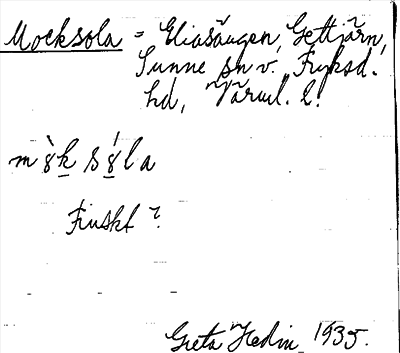 Mocksola = Eliasängen, Gettjärn,
Sunne sn v. Fryksd.
hd, Värml. l.
m ò̱k s ó̱l a
Finskt?
Greta Hedin 1935.